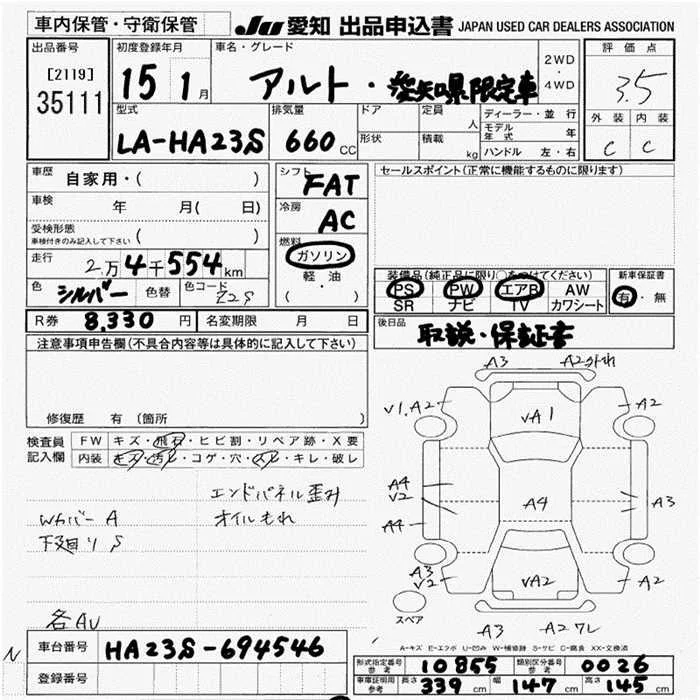 車内保管・守衛保管
JU 愛知 出品申込書 JAPAN USED CAR DEALERS ASSOCIATION
出品番号
[2119]
35111
初度登録年月
15 1月
車名・グレード
アルト・愛知県限定車
2WD
・
4WD
評価点
3.5
外装 内装
C C
型式
LA-HA23S
排気量
660 CC
ドア
形状
定員
人
積載
kg
ディーラー・並行
モデル年式 年
ハンドル 左・右
車歴 自家用・( )
車検 年 月( 日)
受検形態
車検付きのみ記入して下さい ( )
走行 2万4千554km
色 シルバー 色替 色コード Z2S
R券 8,330 円 名変期限 月 日
シフト
FAT
冷房
AC
燃料
ガソリン
軽・油
( )
セールスポイント(正常に機能するものに限ります)
装備品(純正品に限り○をつけてください) 新車保証書
PS PW エアB AW 有・無
SR ナビ TV カワシート
後日品
取説・保証書
注意事項申告欄(不具合内容等は具体的に記入して下さい)
修復歴 有(箇所 )
検査員記入欄
FW キズ・飛石・ヒビ割・リペア跡・X要
内装 キズ・汚レ・コゲ・穴・スレ・キレ・破レ
エンドパネル歪み
Wカバー A オイルもれ
下廻りS
各AU
A3 A2外れ
V1.A2 VA1 A2
A4
V2 A4 A3
A4
A3
V2 VA2 A2
スペア
A3 A2ワレ
A-キズ E-エクボ U-凹み W-補修跡 S-サビ C-腐食 XX-交換済
N
車台番号 HA23S-694546
登録番号
形式指定番号 参考 10855 類別区分番号 参考 0026
車庫証明用 参考 長さ 339cm 幅 147cm 高さ 145cm